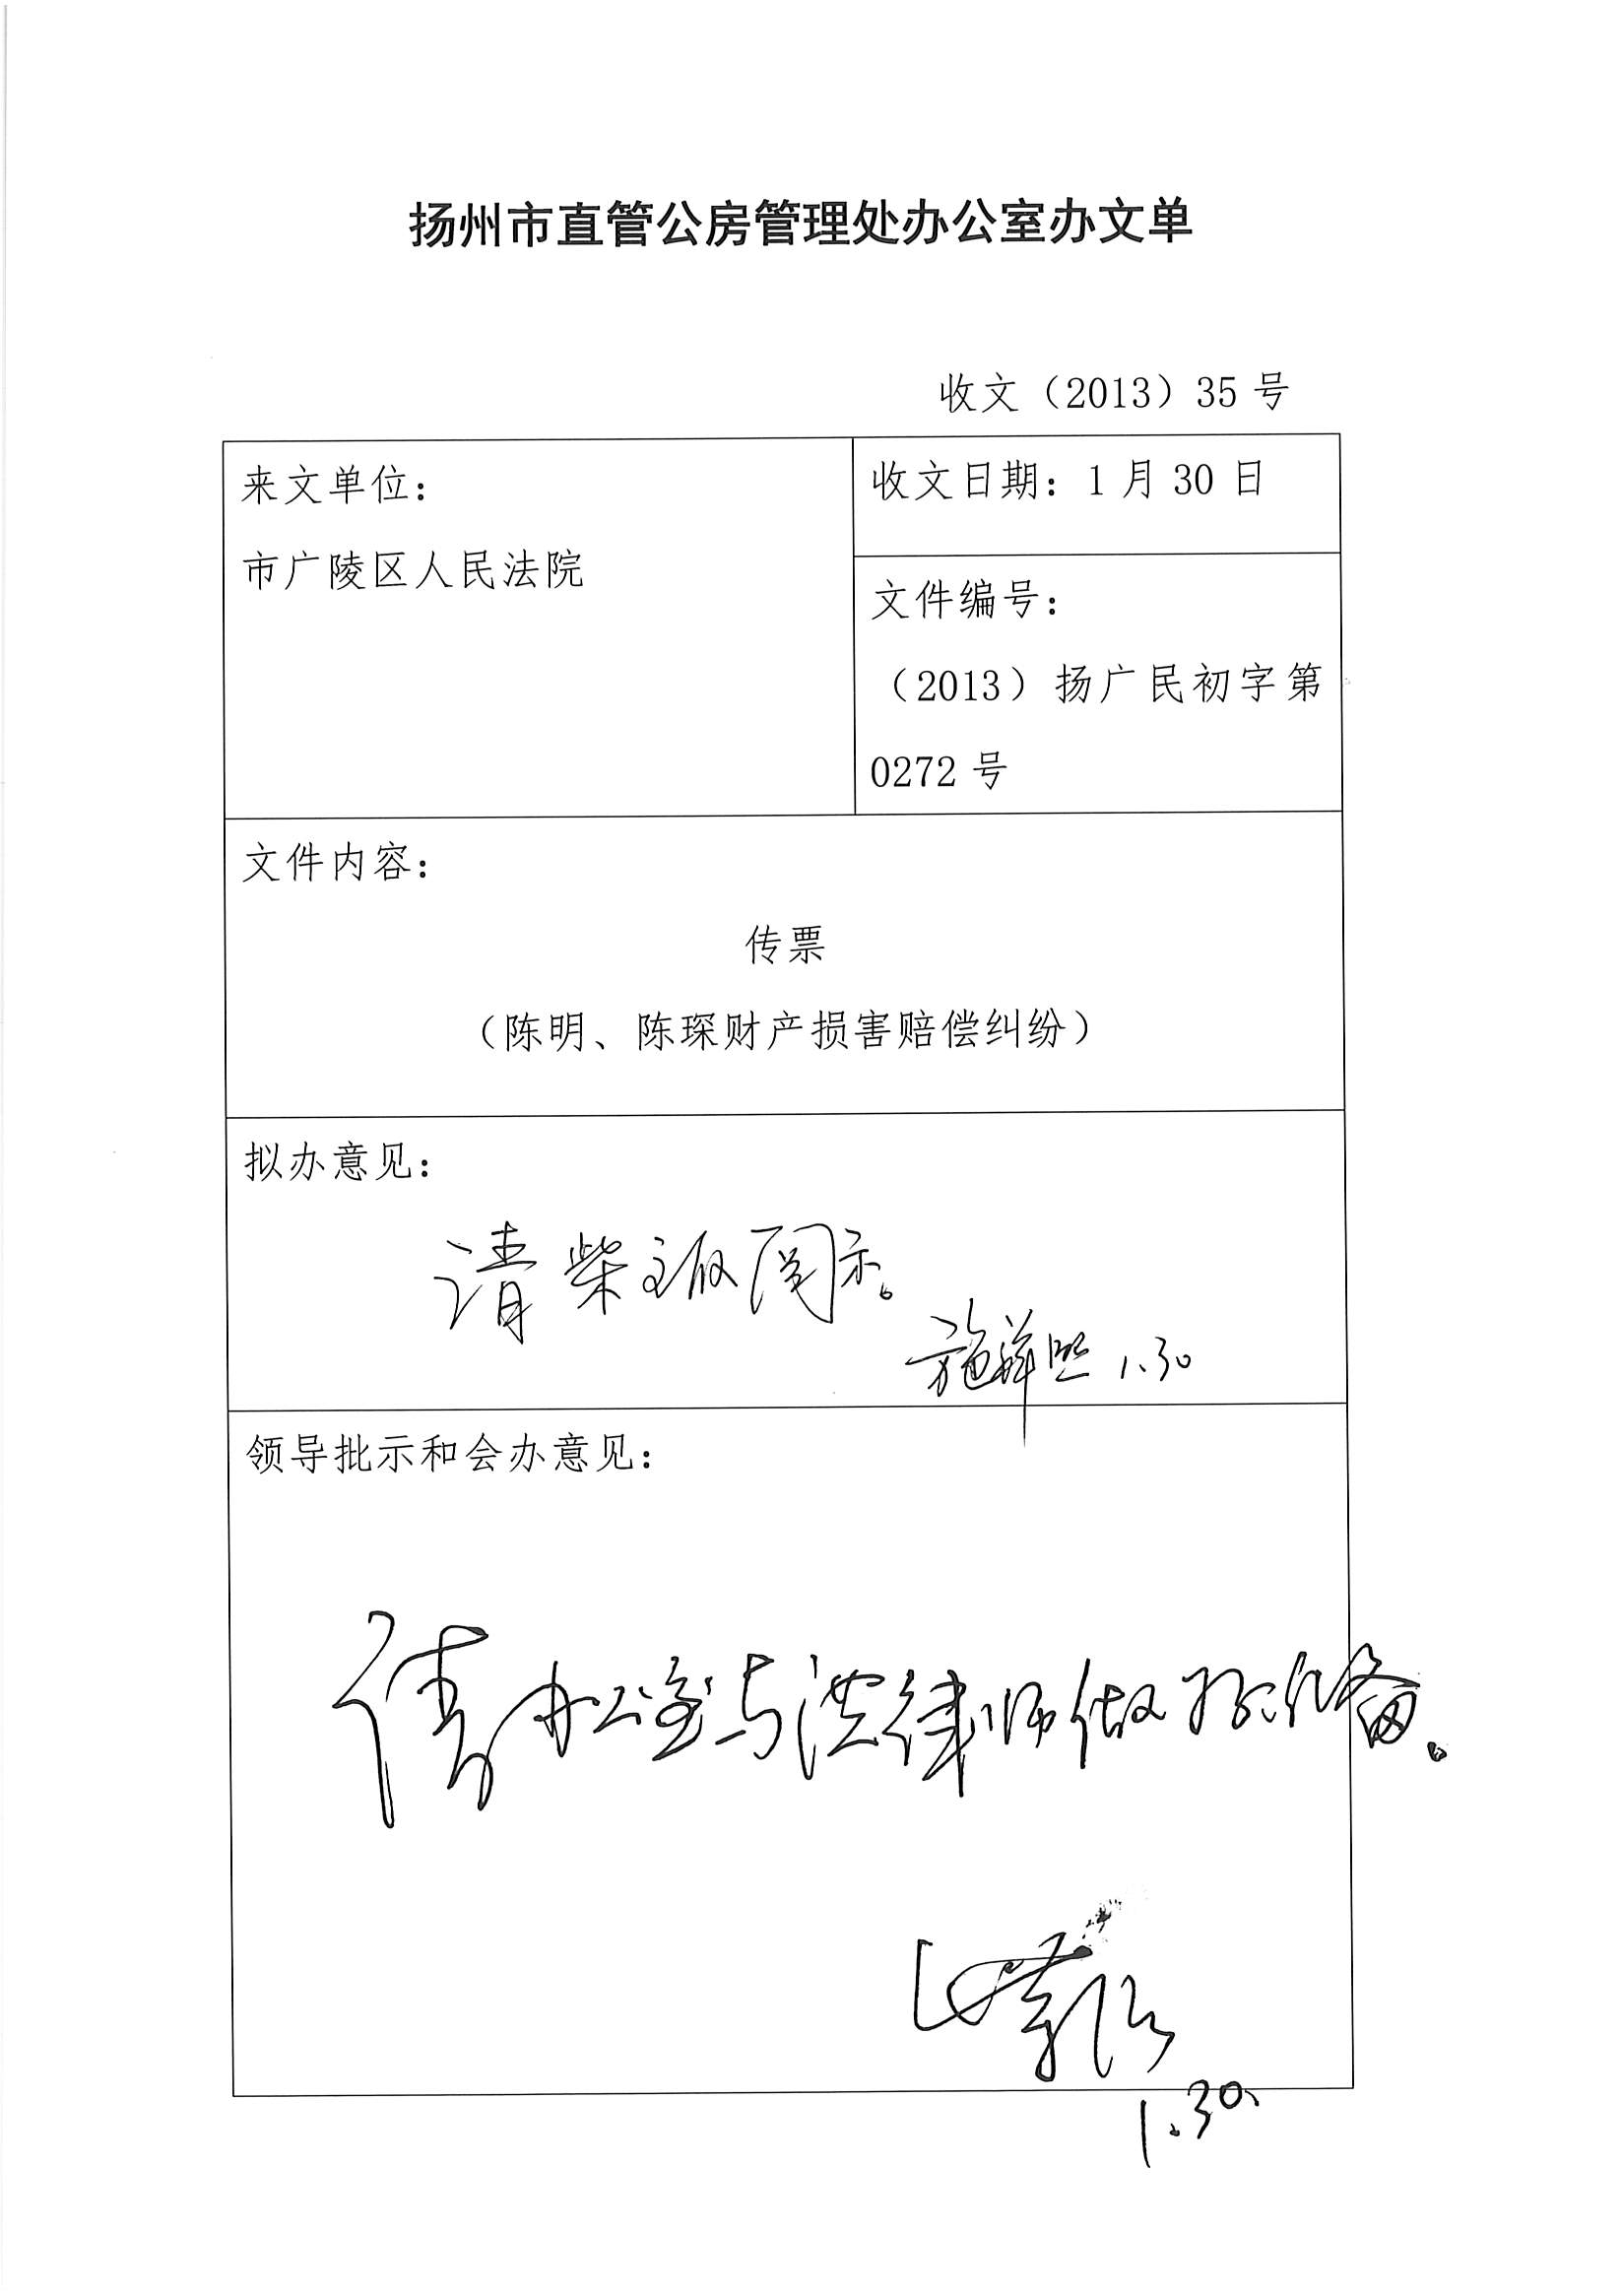 扬州市直管公房管理处办公室办文单
收文（2013）35 号
来文单位：
市广陵区人民法院
收文日期：1 月 30 日
文件编号：
（2013）扬广民初字第
0272 号
文件内容：
传票
（陈明、陈琛财产损害赔偿纠纷）
拟办意见：
请柴主政阅示。
施 1.30
领导批示和会办意见：
请办公室与洪律师做好准备。
1.30